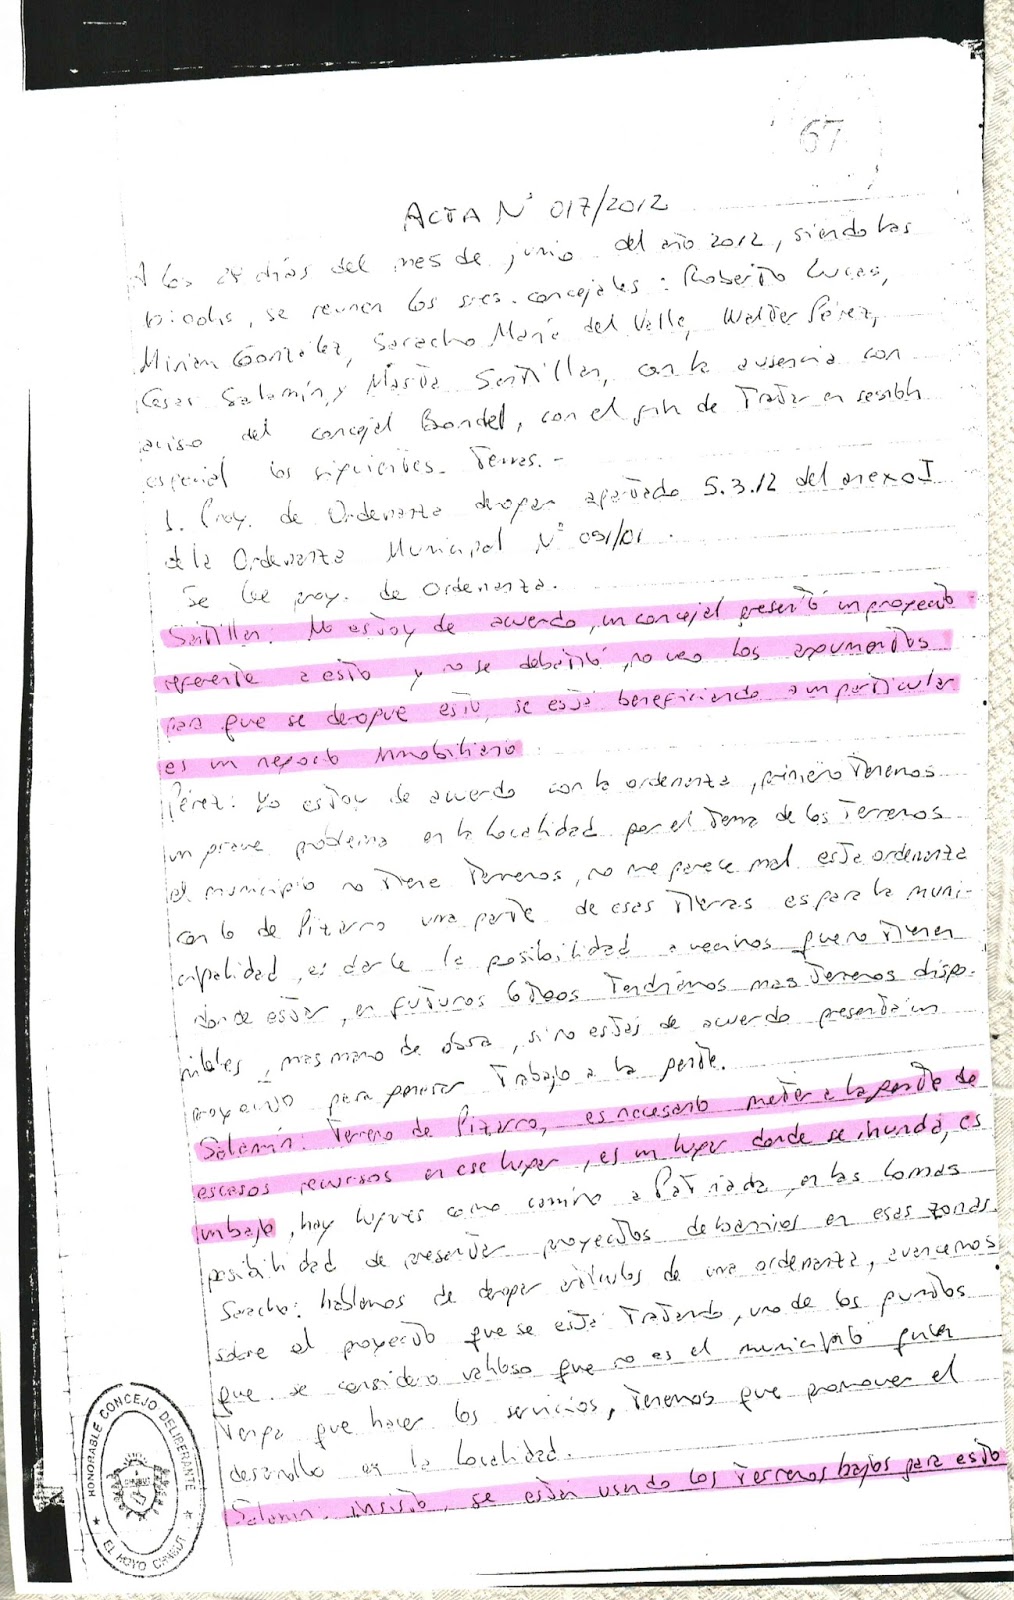 67
ACTA N° 017/2012
A los 28 días del mes de junio del año 2012, siendo las
se reunen los sres. concejales: Roberto Lucas,
Miriam González, Saracho María del Valle, Walter Pérez,
Cesar Salamín, y Marta Santillan, con la ausencia con
aviso del concejal Bondel, con el fin de Tratar en sesión
especial los siguientes Temas.-
1. Proy. de Ordenanza derogar apartado 5.3.12 del anexo I
de la Ordenanza Municipal N° 091/01.
Se lee proy. de ordenanza.
Santillan: No estoy de acuerdo, un concejal presentó un proyecto
referente a esto y no se debatió, no veo los argumentos
para que se derogue esto, se está beneficiando a un particular
es un negocio inmobiliario.
Pérez: Yo estoy de acuerdo con la ordenanza, primero Tenemos
un grave problema en la localidad por el Tema de los Terrenos
el municipio no Tiene Terrenos, no me parece mal esta ordenanza
con lo de Pizarro una parte de esas Tierras es para la muni-
cipalidad, es darle la posibilidad a vecinos que no Tienen
donde estar, en futuros loteos Tendriamos mas Terrenos dispo-
nibles, mas mano de obra, si no estás de acuerdo presentá un
proyecto para generar Trabajo a la gente.
Salamín: Terreno de Pizarro, es necesario meter a la gente de
escasos recursos en ese lugar, es un lugar donde se inunda, es
un bajo, hay lugares como camino a Patriada, en las lomas
posibilidad de presentar proyectos de barrios en esas zonas.
Saracho: hablamos de derogar artículos de una ordenanza, avancemos
sobre el proyecto que se está Tratando, uno de los puntos
que se consideró valioso que no es el municipio quien
Tenga que hacer los servicios, Tenemos que promover el
desarrollo en la localidad.
Salamín: insisto, se están usando los Terrenos bajos para esto
HONORABLE CONCEJO DELIBERANTE
EL HOYO CHUBUT